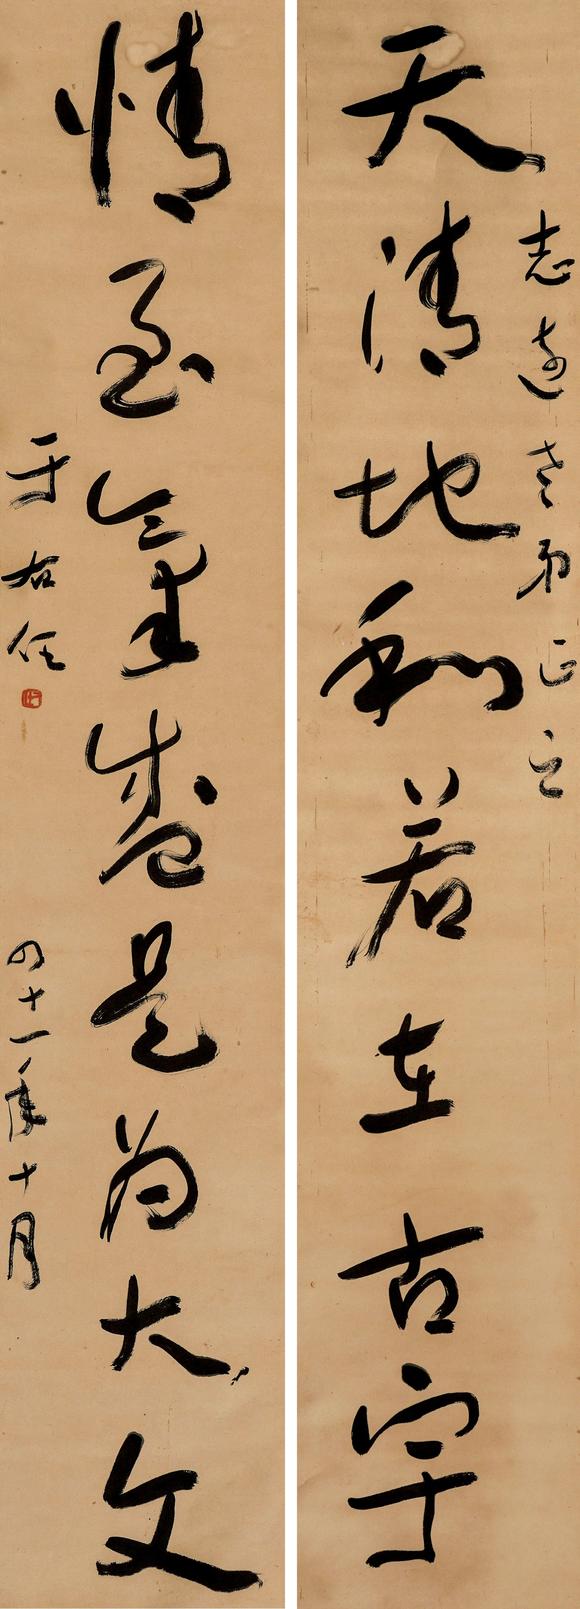 志遠老弟正之
天清地和若在古宇
情至氣盛是為大文
于右任
四十一年十月